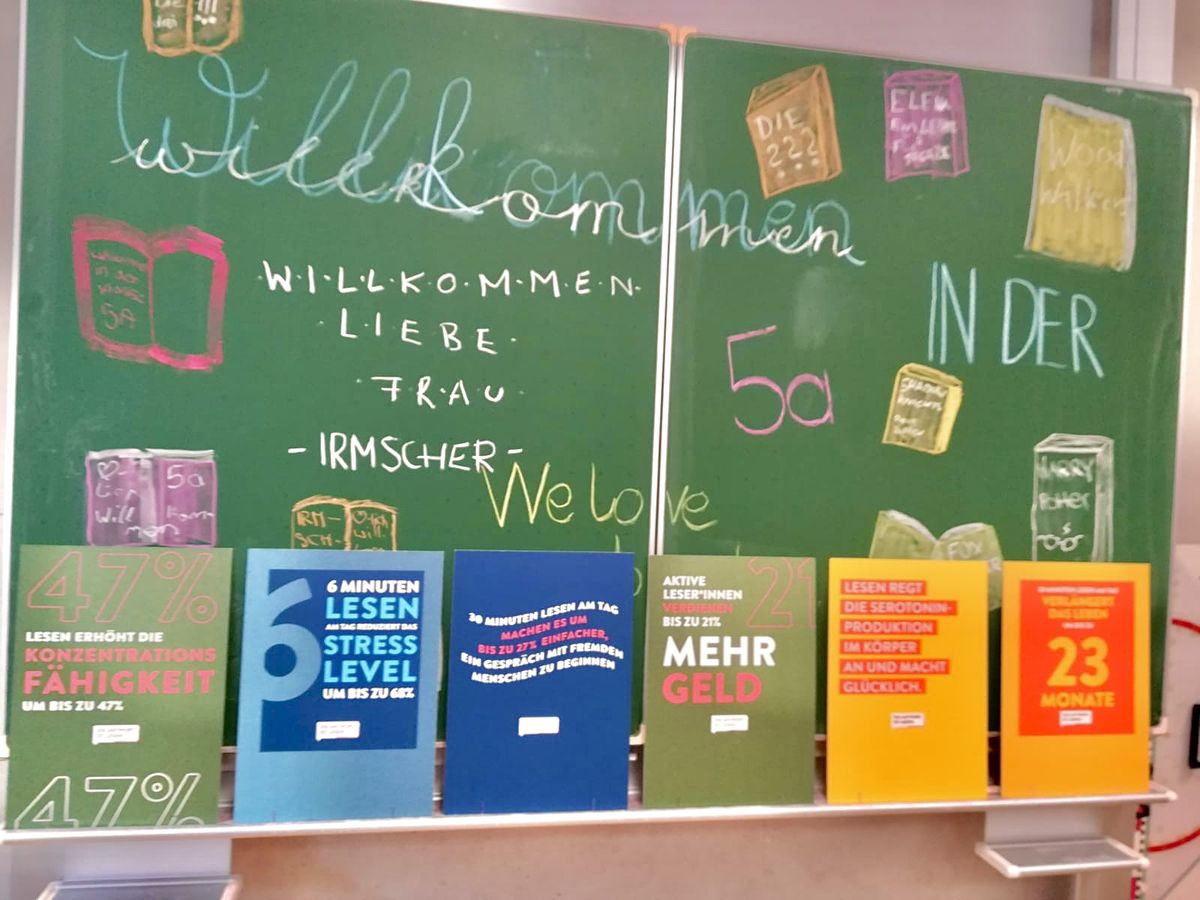 Willkommen
willkommen
DIE
???
Wood
Walkers
W·I·L·L·K·O·M·M·E·N
LIEBE
FRAU
-IRMSCHER-
IN DER
5a
We love
Willkommen
in der
Klasse
5A
5a
Will
kom
men
IRM-
SCH-
HARRY
POTTER
FOX
47%
LESEN ERHÖHT DIE
KONZENTRATIONS
FÄHIGKEIT
UM BIS ZU 47%
47%
6
6 MINUTEN
LESEN
AM TAG REDUZIERT DAS
STRESS
LEVEL
UM BIS ZU 68%
30 MINUTEN LESEN AM TAG
MACHEN ES UM
BIS ZU 27% EINFACHER,
EIN GESPRÄCH MIT FREMDEN
MENSCHEN ZU BEGINNEN
21
AKTIVE
LESER*INNEN
VERDIENEN
BIS ZU 21%
MEHR
GELD
LESEN REGT
DIE SEROTONIN-
PRODUKTION
IM KÖRPER
AN UND MACHT
GLÜCKLICH.
VERLÄNGERT
DAS LEBEN
UM BIS ZU
23
MONATE